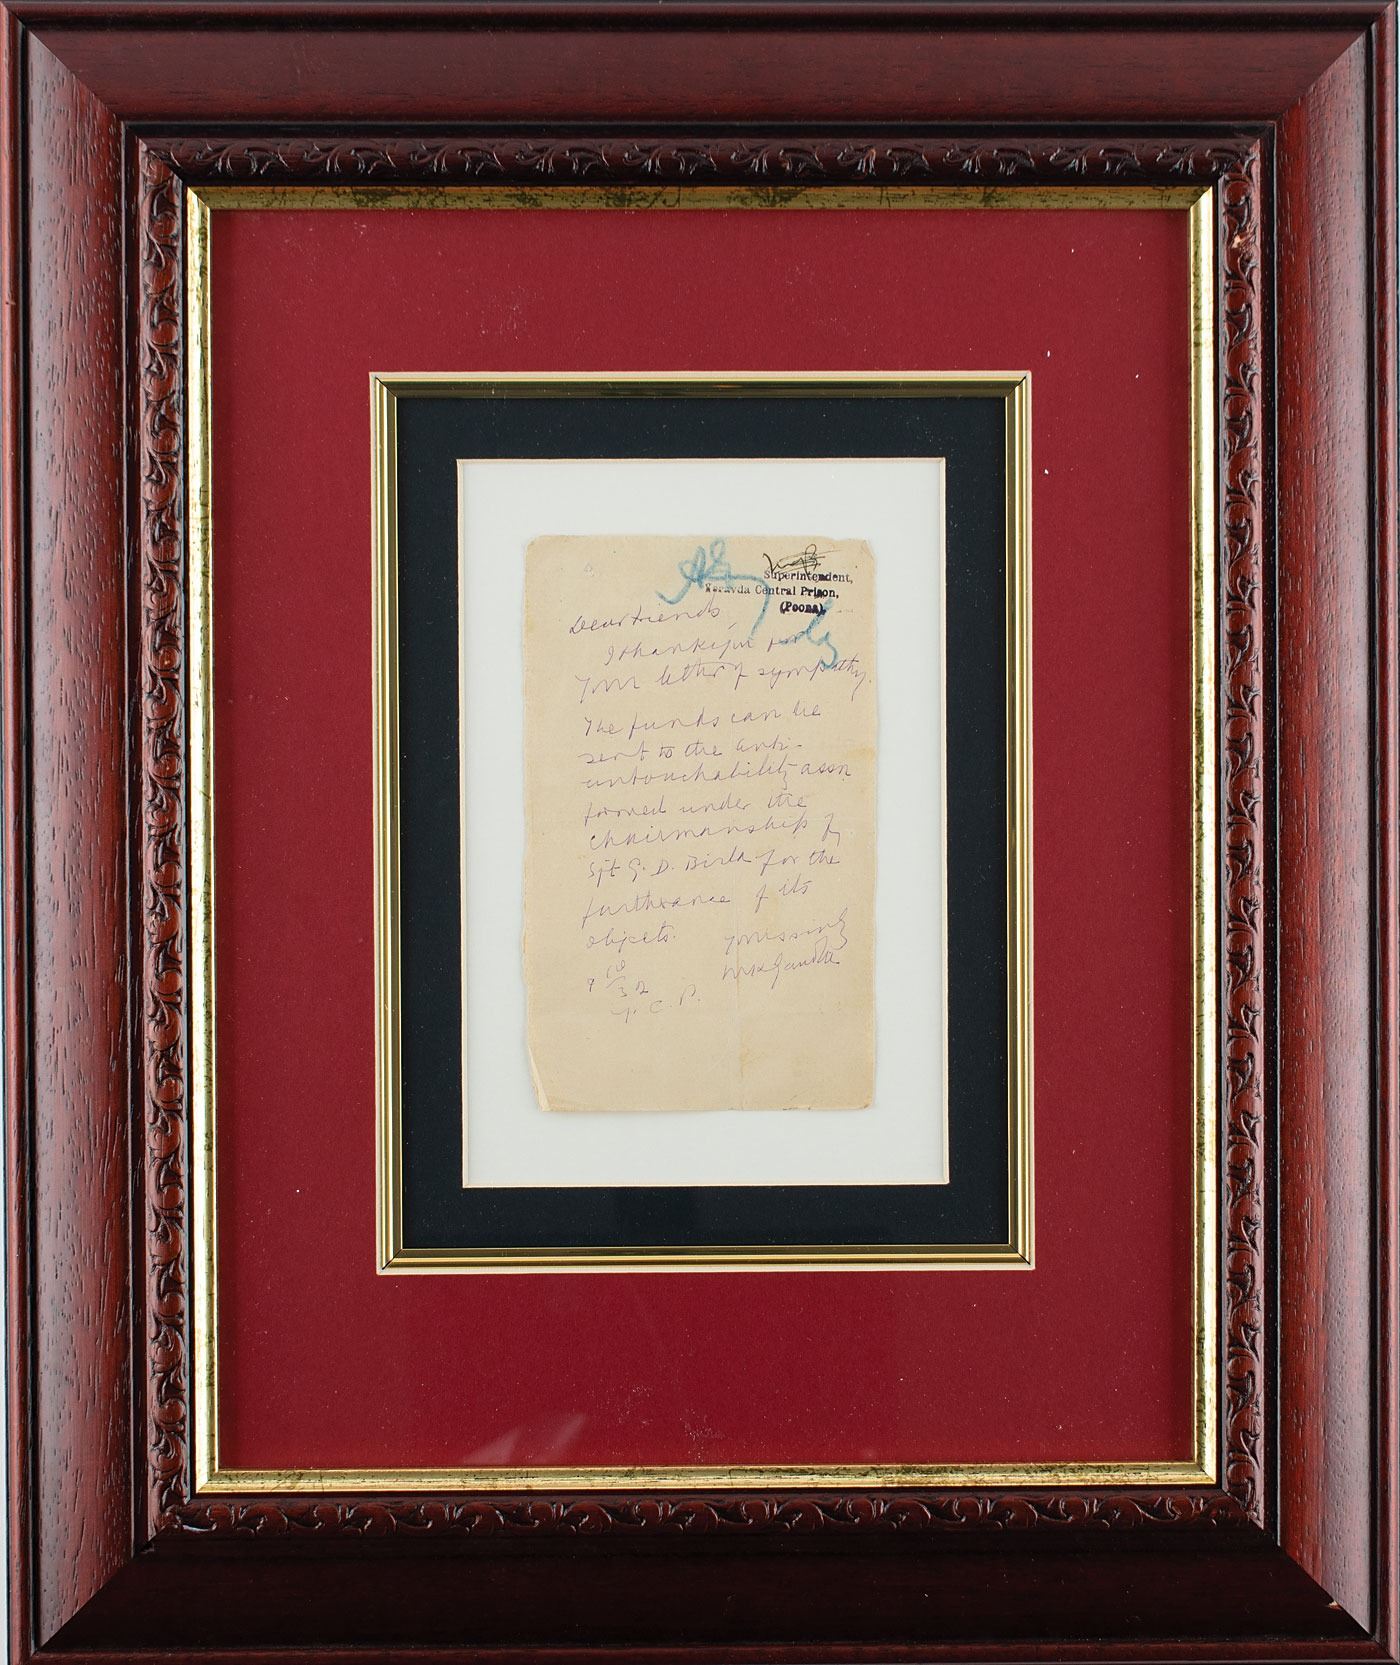 Superintendent,
Yeravda Central Prison,
(Poona).
Dear friends,
I thank you for
your letter of sympathy.
The funds can be
sent to the Anti-
untouchability assn
formed under the
chairmanship of
Sjt G. D. Birla for the
furtherance of its
objects.
yours sincly
MKGandhi
7 10/32
Y. C. P.